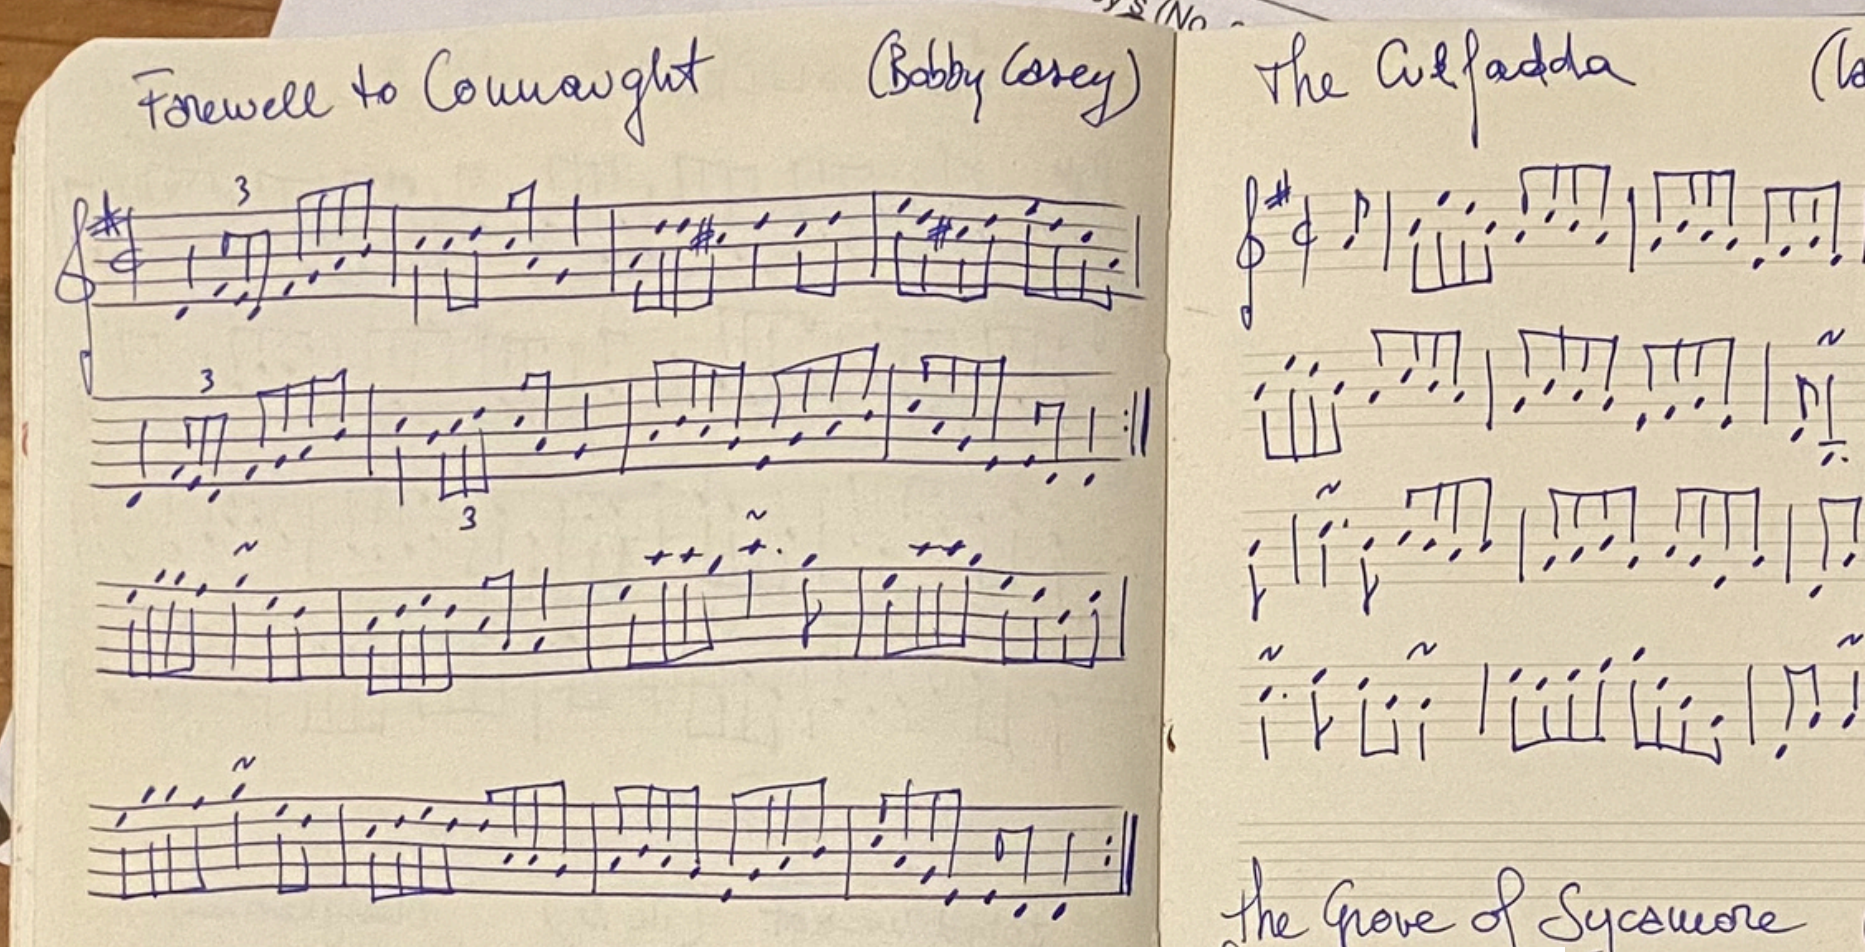 y's (No.
Farewell to Connaught (Bobby Casey)
3
3
3
The Culfadda
The Grove of Sycamore